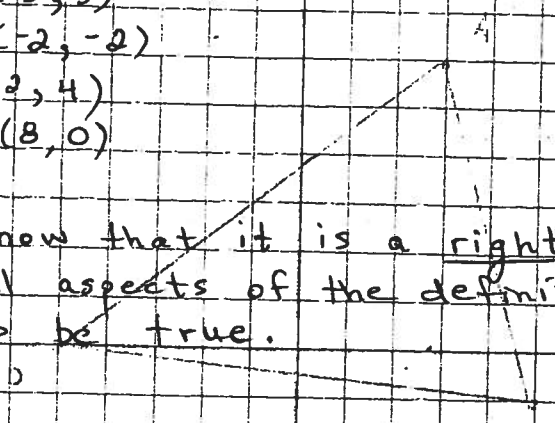 (-2, -2)
2, 4)
(8, 0)
now that it is a right
aspects of the defini
be true.
)